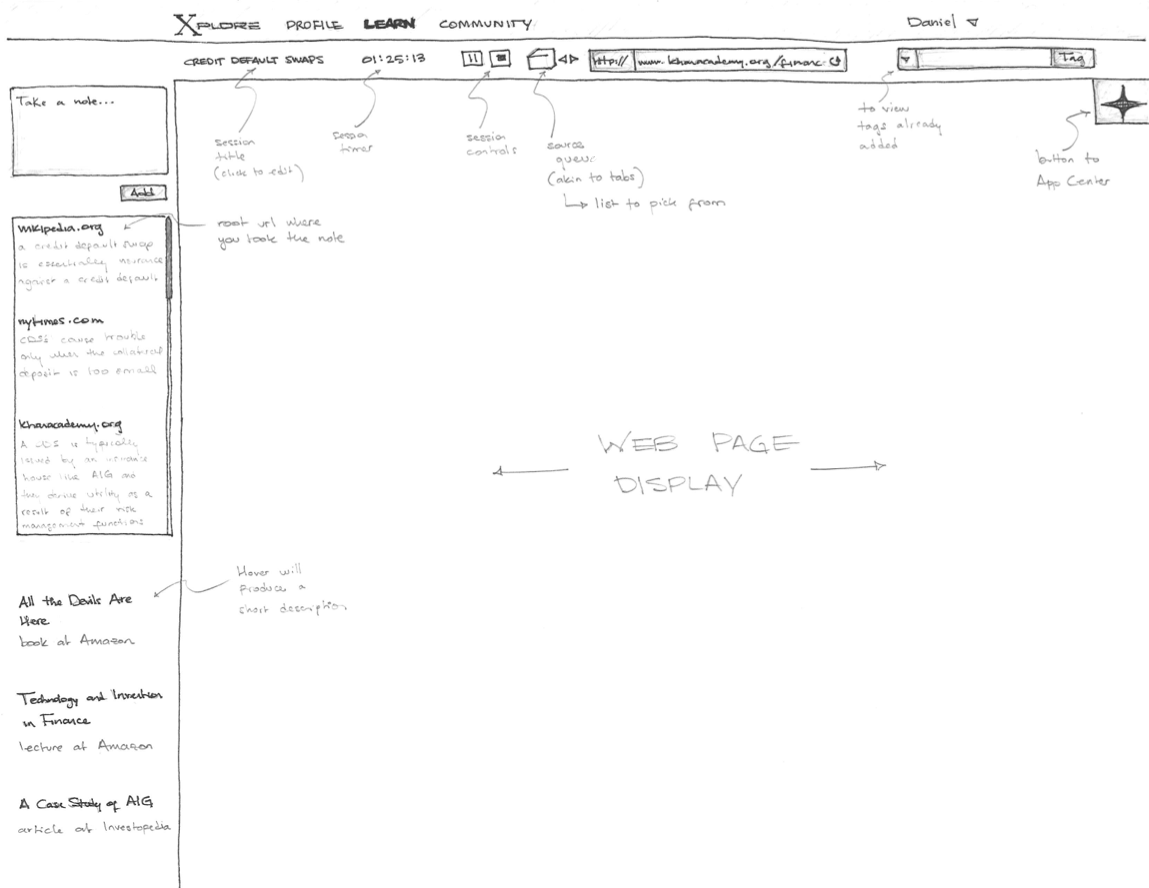 XPLORE PROFILE LEARN COMMUNITY Daniel
CREDIT DEFAULT SWAPS 01:25:13 http:// www.khanacademy.org/financ Tag
Take a note...
Add
session
title
(click to edit)
session
timer
session
controls
source
queue
(akin to tabs)
list to pick from
to view
tags already
added
button to
App Center
root url where
you took the note
wikipedia.org
a credit default swap
is essentially insurance
against a credit default
nytimes.com
CDSs cause trouble
only when the collateral
deposit is too small
khanacademy.org
A CDS is typically
issued by an insurance
house like AIG and
they derive utility as a
result of their risk
management functions
WEB PAGE
DISPLAY
Hover will
produce a
short description
All the Devils Are
Here
book at Amazon
Technology and Invention
in Finance
lecture at Amazon
A Case Study of AIG
article at Investopedia